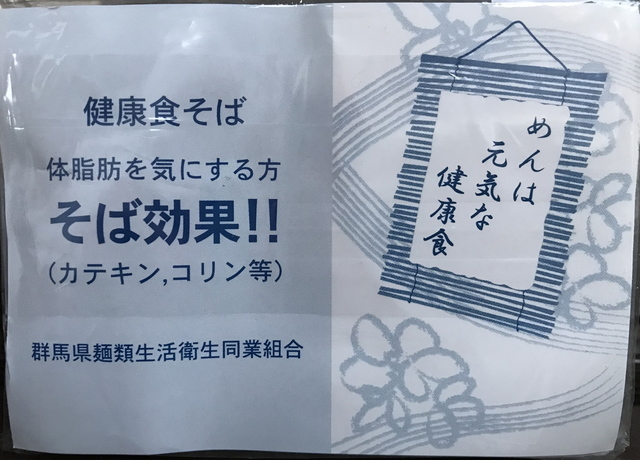 健康食そば
体脂肪を気にする方
そば効果!!
(カテキン,コリン等)
群馬県麺類生活衛生同業組合
めんは
元気な
健康食